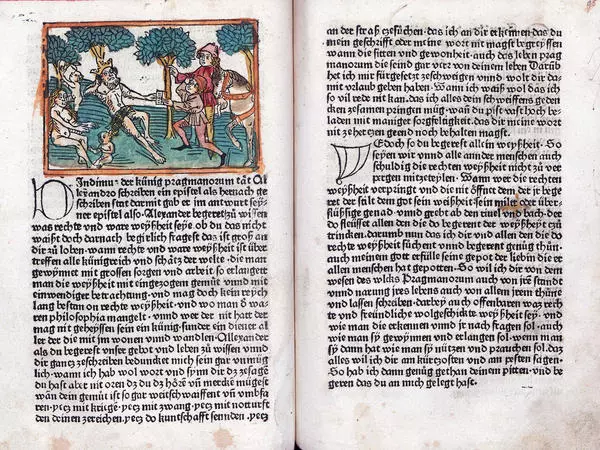 Indimus der künig pragmanorum tåt Al⸗
lexandro schreiben ein epistel als hernach ge
schriben stat darmit gab er im antwurt sey⸗
ner epistel also. Allexander begeret zů wissen
was rechte vnd ware weyßheit seye. ob du das nicht
waist doch darnach begirlich fragest das ist groß an
dir zů loben. wann rechte vnd ware weyßheit ist über
treffen alle künigreich vnd schåtz der welte. die mart
gewynnet mit grossen sorgen vnd arbeit so erlangett
man die weyßheit mit eingezogem gemüt vnnd mit
einwendiger betrachtung. vnd mag doch kein reych
lang besten on rechte weyßheit. vnd wo man d waren
philosophia mangelt. vnnd wer der nit hatt der
mag nit geheyssen sein ein künig. sunder ein diener al
ler der die mit im wonen vnnd wandlen. Allexander
als du begerest vnser gebot vnnd leben zů wissen vnnd
dir gancz zeschreiben bedunckt mich sein gar vnmüg
lich. wann ich hab wol wort vnd synn dir dz zesagē
du hast aber nit oren dz du dz hörē vñ mercke mügest
wann dein gemüt ist so gar weitschwaiffent vñ vmbfa
ren. yecz mit kriege. yecz mit zwang. yecz mit notturft
den deinen zereichen. yecz do kuntschafft sennden. yecz
an der straß czesůchen. das ich an dir erkennen das du
mein geschrifft oder meine wort nit magst begreyffen
wann die sitten vnd gewonheit. auch das leben prag
manorum die seind gar verr von deinem leben Darůb
het ich mir fürgesetzt zeschweigen vnnd. wolt dir da⸗
mit vrlaub geben haben. Wann ich waiß wol das ich
so vil redt mit kan. das ich alles dein schweiffens geden
cken zesamen pringen müg. wañ du pist vast hoch be⸗
laden mit maniger sorgfeltigkeit. das die meine wort
nit zehertzen geend noch behalten magst.
Edoch so du begerest allein weyßheit. So
seyen wir vnnd alle annder menschen auch
schuldig die rechten weyßheit nicht zů ver
perget mitzeteylen. Wann wer die rechten
weyßheit verpringt vnd die nit öffnet dem der je bege
ret der filt dem got sein weißheit sein milte der über⸗
flüßsige genad. vnnd grebt ab den einel vnd bach. der
do fleüsset allen den die do begerent der weyßheyt zů
trincken darumb tun das ich dir vnd allen den die do
rechte weyßheit sůchent vnnd begerent genüg thün.
auch meinem gott erfülle seine gepot der liebin die er
allen menschen hat gepotten. So wil ich dir von dem
wesen des wilds Pragmanorum auch von jrē stannd
vnnd narung jres lebens auch von allem jrem thůnē
vnd lassen schreiben. darbey auch offenbaren was rech
te vnd freündtliche wolgeschickte weyßheit sey. vnnd
wie man die erkennen vnnd je nach fragen sol. auch
wie man sy gewynnen vnd erlangen sol. wenn man
sy dann hat wie man sy nützen vnd prauchen sol. daz
alles wil ich dir am kürtzosten vnd am pesten sagen.
So hab ich dann genůg gethan deinem pitten. vnd be
geren das du an mich gelegt hast.